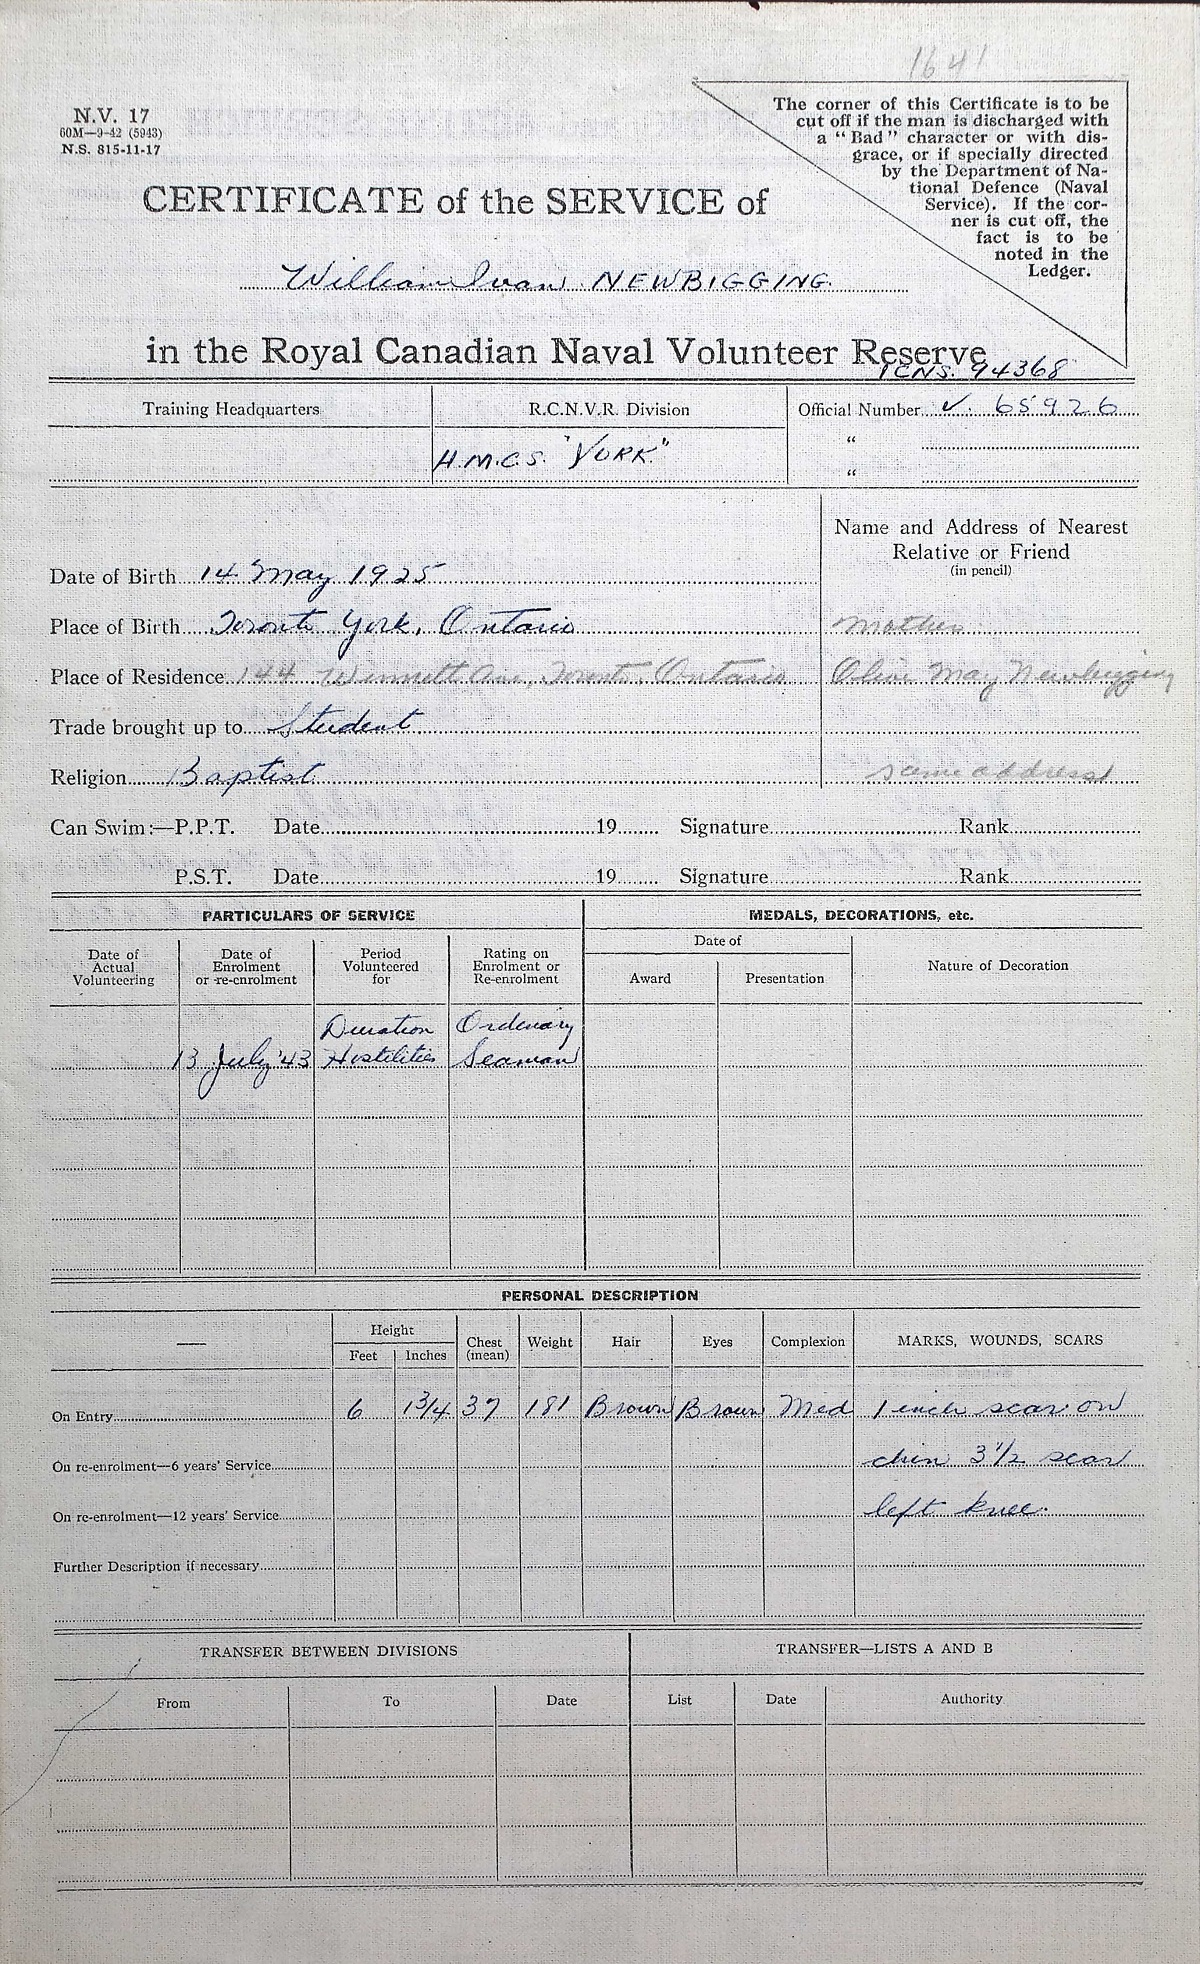 1641
N.V. 17
60M—9-42 (5943)
N.S. 815-11-17
The corner of this Certificate is to be
cut off if the man is discharged with
a "Bad" character or with dis-
grace, or if specially directed
by the Department of Na-
tional Defence (Naval
Service). If the cor-
ner is cut off, the
fact is to be
noted in the
Ledger.
CERTIFICATE of the SERVICE of
William Ivan NEWBIGGING.
in the Royal Canadian Naval Volunteer Reserve
94368
Training Headquarters
R.C.N.V.R. Division
Official Number V. 65926
H.M.C.S. "YORK"
"
"
Name and Address of Nearest
Relative or Friend
(in pencil)
Date of Birth 14 May 1925
Place of Birth Toronto York, Ontario
mother
Place of Residence 144 Winnett Ave, Toronto, Ontario
Olive May Newbigging
Trade brought up to Student
Religion Baptist
same address
Can Swim:—P.P.T. Date 19 Signature Rank
P.S.T. Date 19 Signature Rank
PARTICULARS OF SERVICE
MEDALS, DECORATIONS, etc.
Date of
Actual
Volunteering
Date of
Enrolment
or re-enrolment
Period
Volunteered
for
Rating on
Enrolment or
Re-enrolment
Date of
Award
Presentation
Nature of Decoration
13 July '43
Duration
Hostilities
Ordinary
Seaman
PERSONAL DESCRIPTION
—
Height
Feet
Inches
Chest
(mean)
Weight
Hair
Eyes
Complexion
MARKS, WOUNDS, SCARS
On Entry 6 1 3/4 37 181 Brown Brown Med 1 inch scar on
On re-enrolment—6 years' Service chin 3 1/2 scar
On re-enrolment—12 years' Service left knee.
Further Description if necessary
TRANSFER BETWEEN DIVISIONS
TRANSFER—LISTS A AND B
From
To
Date
List
Date
Authority